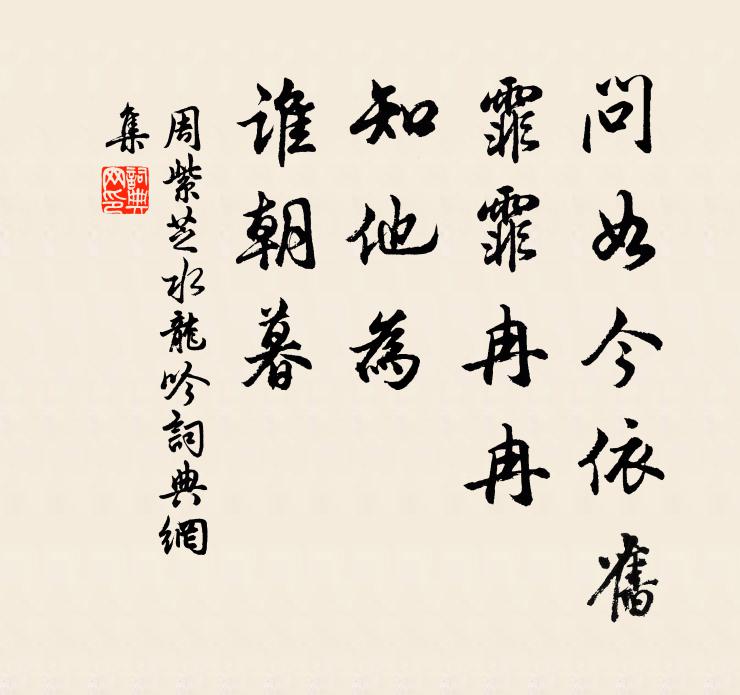 問如今依舊
霏霏冉冉
知他為
誰朝暮
周紫芝水龍吟詞典網
集
詞典網印